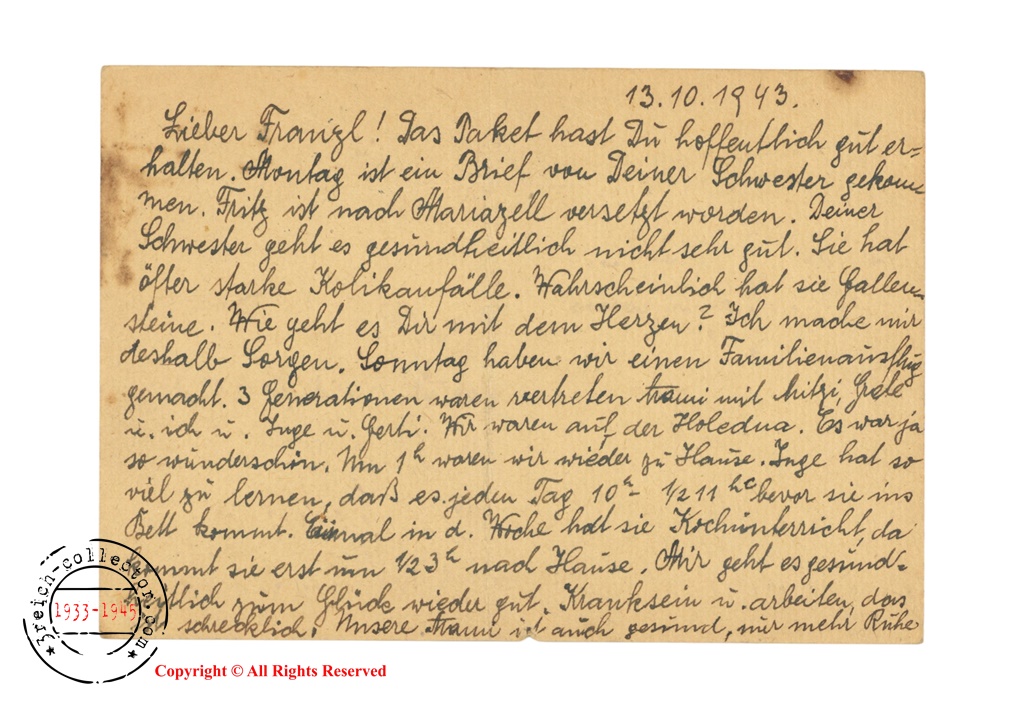 13.10.1943.
Lieber Franzl! Das Paket hast Du hoffentlich gut er=
halten. Montag ist ein Brief von Deiner Schwester gekom
men. Fritz ist nach Mariazell versetzt worden. Deiner
Schwester geht es gesundheitlich nicht sehr gut. Sie hat
öfter starke Kolikanfälle. Wahrscheinlich hat sie Gallen=
steine. Wie geht es Dir mit dem Herzen? Ich mache mir
deshalb Sorgen. Sonntag haben wir einen Familienausflug
gemacht. 3 Generationen waren vertreten mit Mitzi, Grete
u. ich u. Inge u. Gerti. Wir waren auf der Holedua. Es war ja
so wunderschön. Um 1h waren wir wieder zu Hause. Inge hat so
viel zu lernen, daß es jeden Tag 10h- 1/2 11h bevor sie ins
Bett kommt. Einmal in d. Woche hat sie Kochunterricht, da
kommt sie erst um 1/2 3h nach Hause. Mir geht es gesund=
heitlich zum Glück wieder gut. Kranksein u. arbeiten, das
schrecklich. Unsere ist auch gesund, nur mehr Ruhe
3reich-collector.com
1933-1945
Copyright © All Rights Reserved